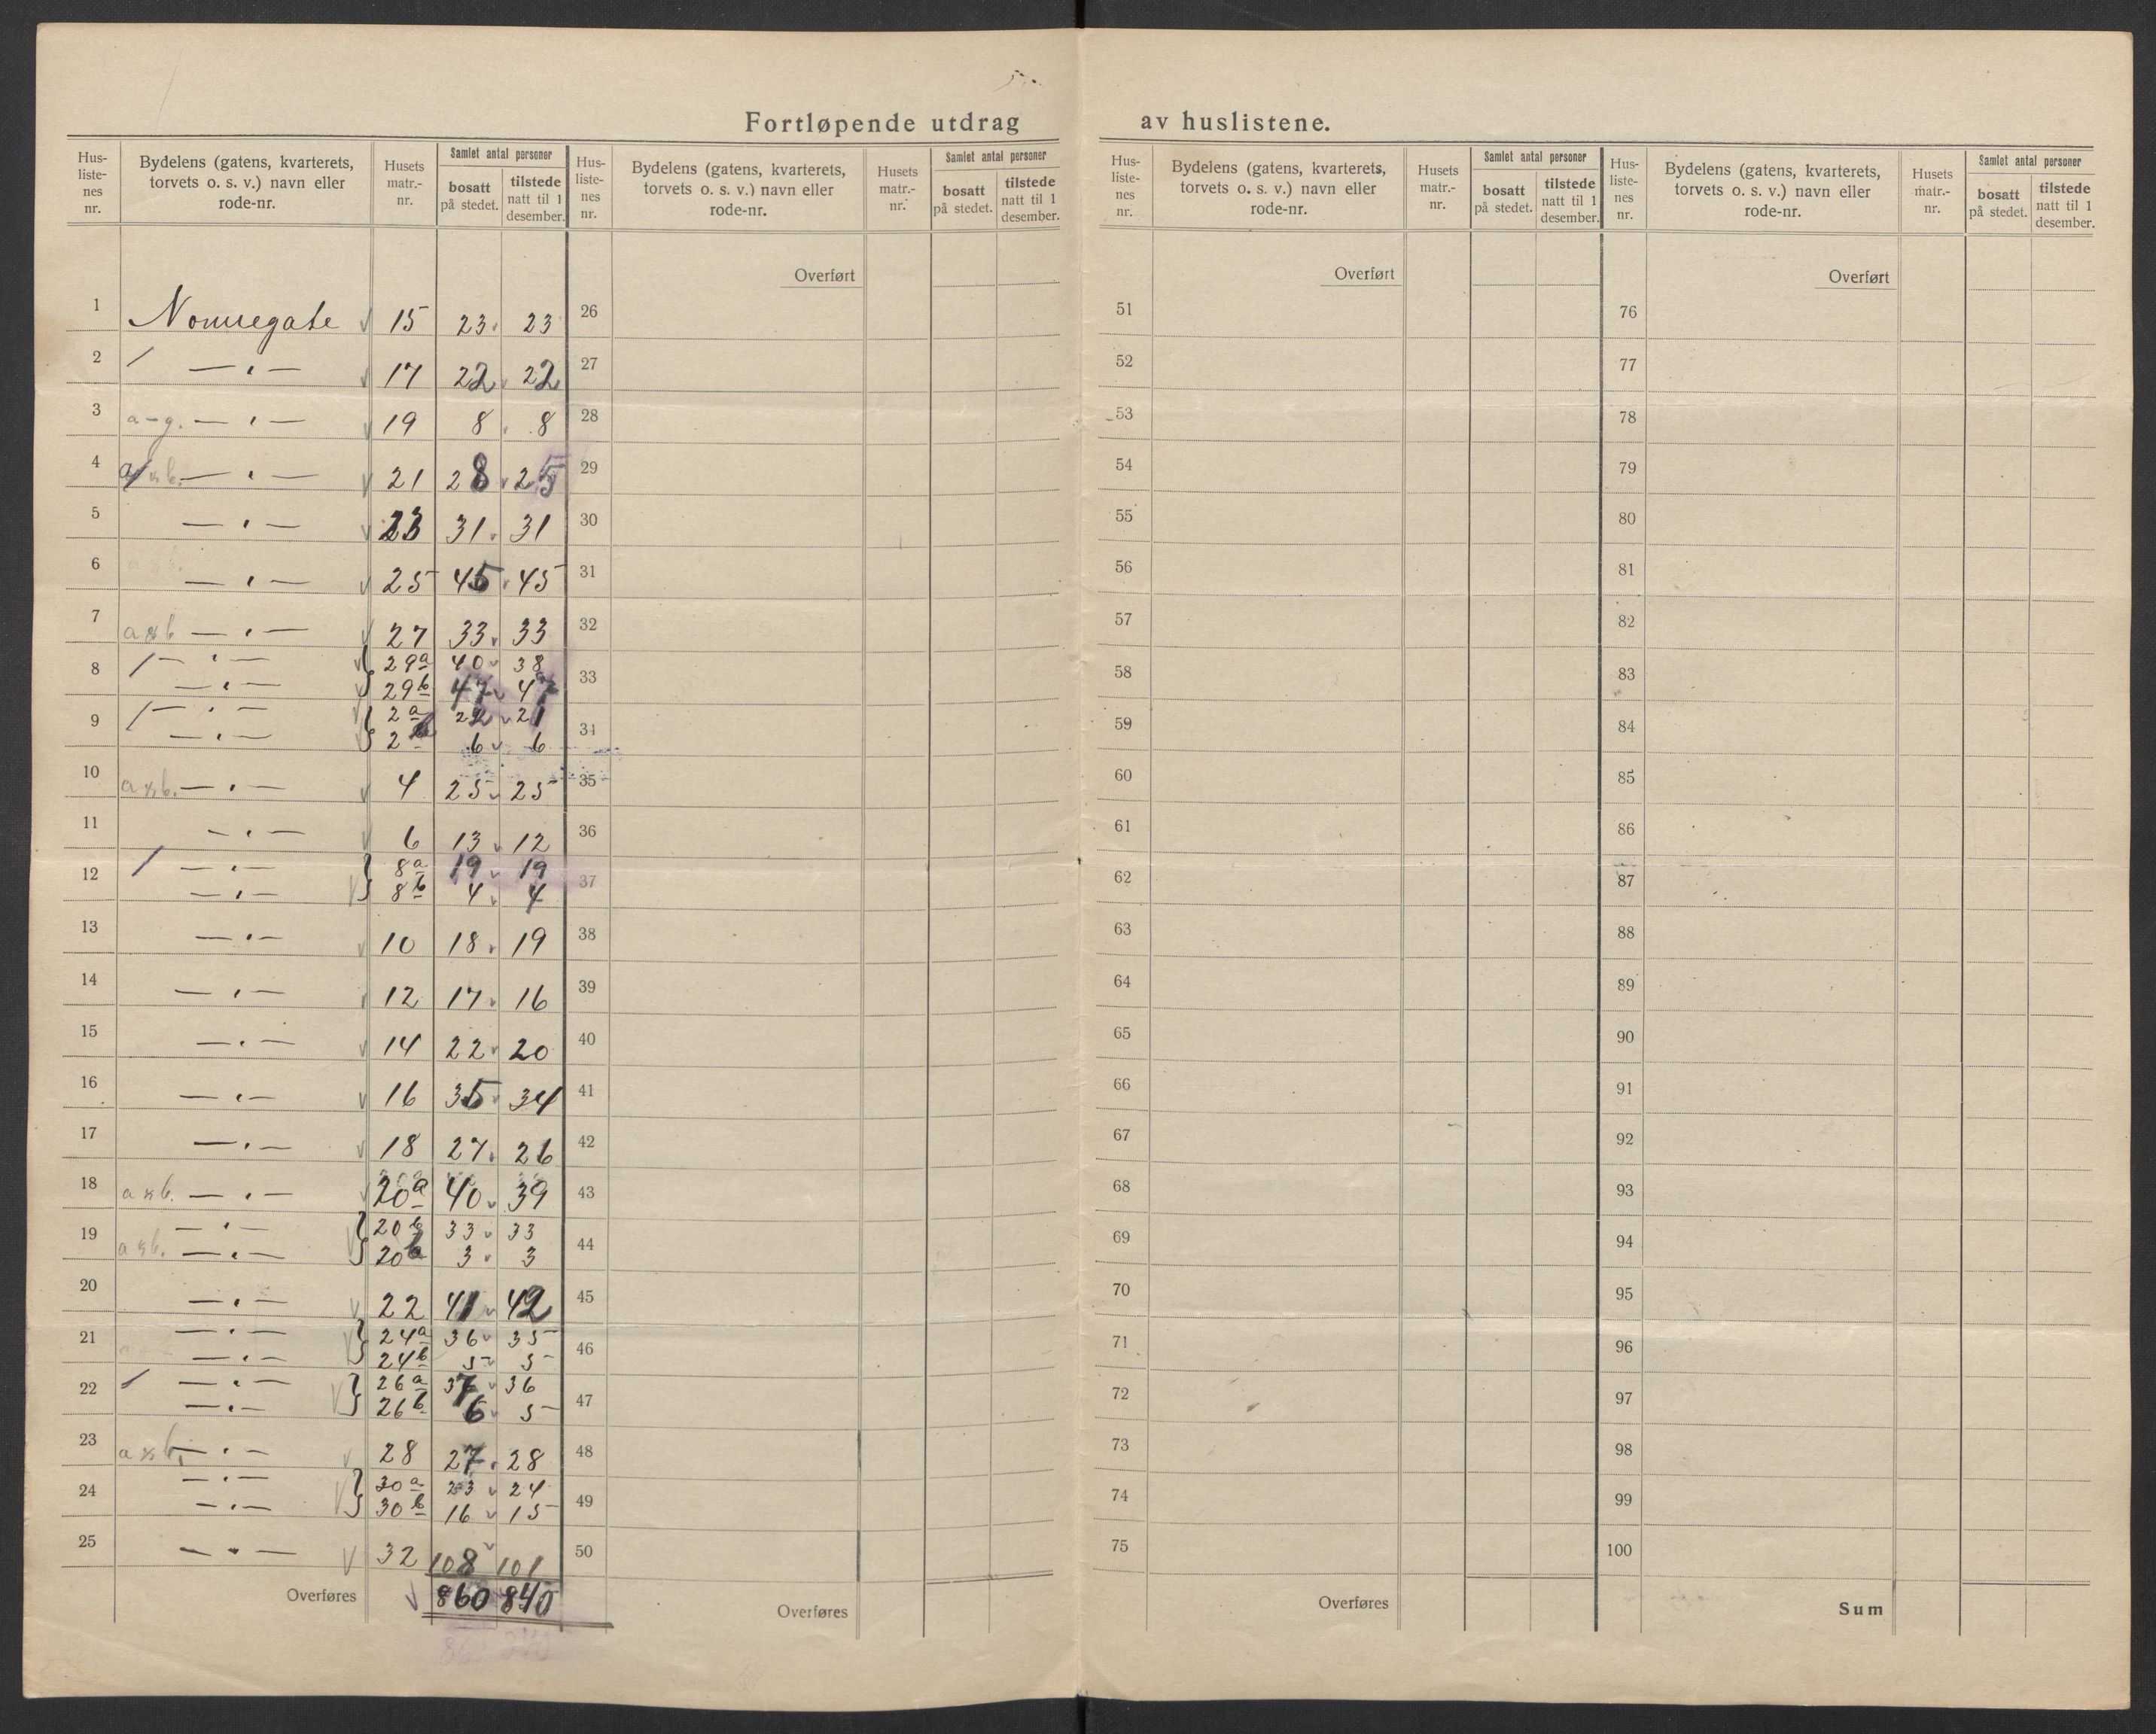 Fortløpende utdrag av huslistene.
Hus-listenes nr. Bydelens (gatens, kvarterets, torvets o. s. v.) navn eller rode-nr. Husets matr.-nr. Samlet antal personer bosatt på stedet. tilstede natt til 1 desember.
Hus-listenes nr. Bydelens (gatens, kvarterets, torvets o. s. v.) navn eller rode-nr. Husets matr.-nr. Samlet antal personer bosatt på stedet. tilstede natt til 1 desember.
Hus-listenes nr. Bydelens (gatens, kvarterets, torvets o. s. v.) navn eller rode-nr. Husets matr.-nr. Samlet antal personer bosatt på stedet. tilstede natt til 1 desember.
Hus-listenes nr. Bydelens (gatens, kvarterets, torvets o. s. v.) navn eller rode-nr. Husets matr.-nr. Samlet antal personer bosatt på stedet. tilstede natt til 1 desember.
Overført Overført Overført
1 Nonnegate 15 23 23 26 51 76
2 — " — 17 22 22 27 52 77
3 a-g. — " — 19 8 8 28 53 78
4 — " — 21 28 25 29 54 79
5 — " — 23 31 31 30 55 80
6 — " — 25 45 45 31 56 81
7 a & b — " — 27 33 33 32 57 82
8 — " — 29a 40 38 33 58 83
— " — 29b 47 47
9 — " — 2a 22 21 34 59 84
— " — 2b 6 6
10 a & b. — " — 4 25 25 35 60 85
11 — " — 6 13 12 36 61 86
12 — " — 8a 19 19 37 62 87
— " — 8b 4 4
13 — " — 10 18 19 38 63 88
14 — " — 12 17 16 39 64 89
15 — " — 14 22 20 40 65 90
16 — " — 16 35 34 41 66 91
17 — " — 18 27 26 42 67 92
18 a & b. — " — 20a 40 39 43 68 93
19 — " — 20b 33 33 44 69 94
a & b. — " — 20b 3 3
20 — " — 22 41 42 45 70 95
21 — " — 24a 36 35 46 71 96
— " — 24b 5 5
22 — " — 26a 37 36 47 72 97
— " — 26b 6 5
23 a & b, — " — 28 27 28 48 73 98
24 — " — 30a 23 24 49 74 99
— " — 30b 16 15
25 — " — 32 108 101 50 75 100
Overføres 860 840 Overføres Overføres Sum